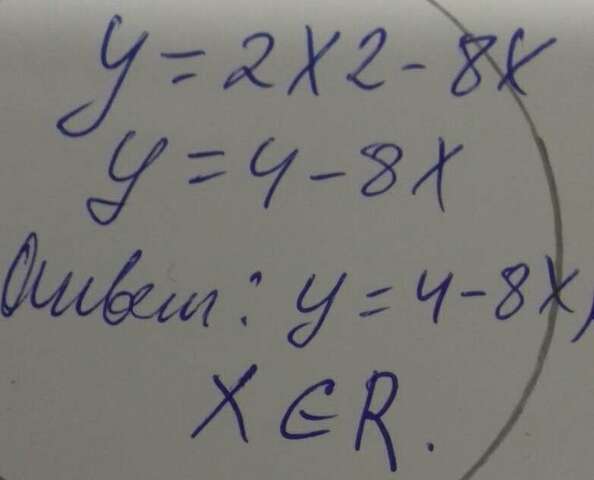 y = 2x2 - 8x
y = 4 - 8x
Ответ: y = 4 - 8x,
x ∈ R.